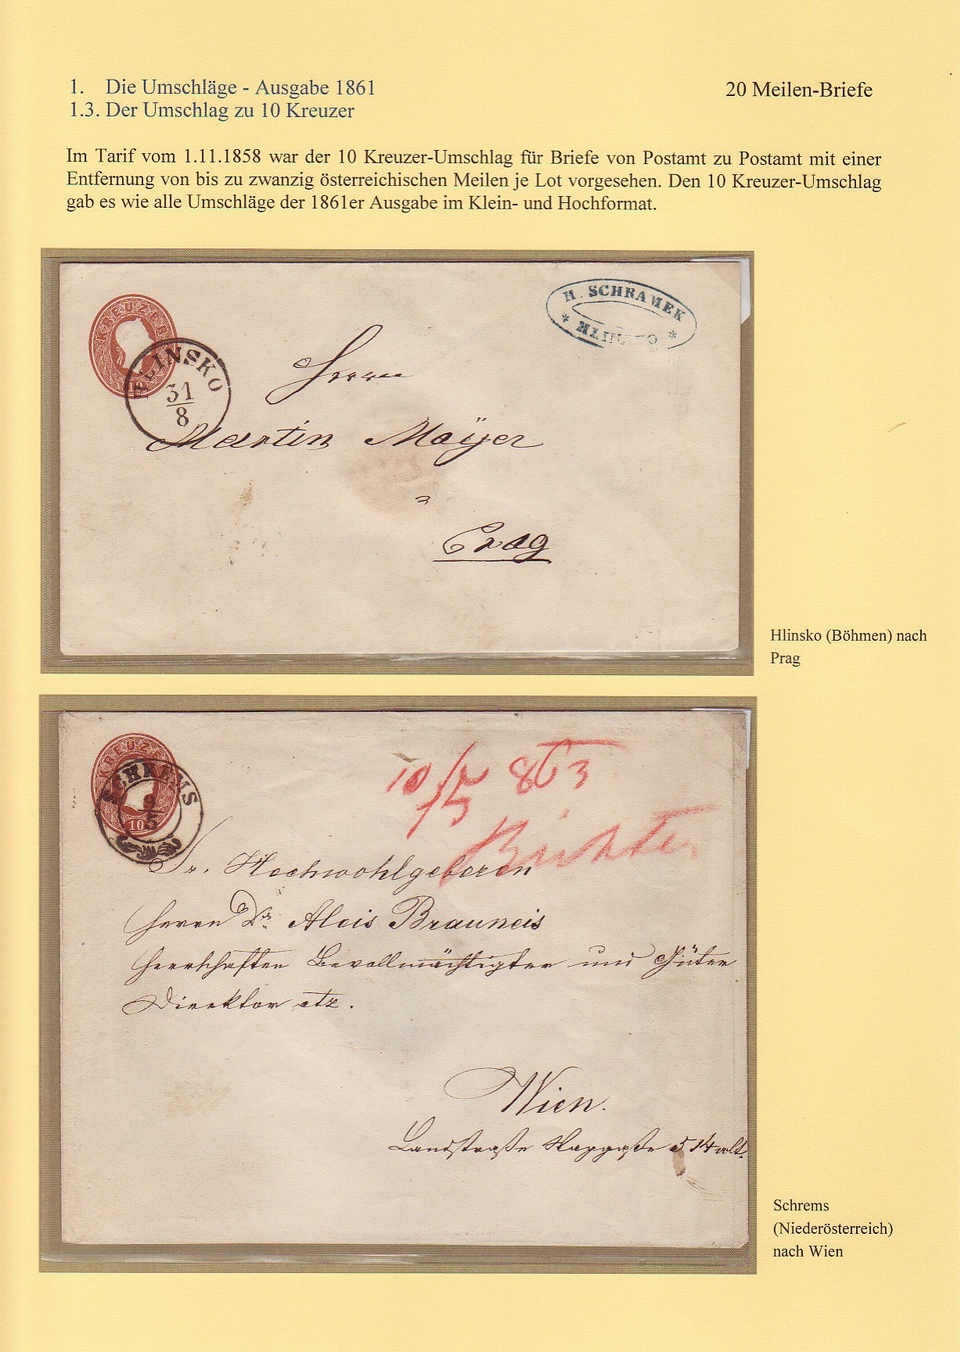 1. Die Umschläge - Ausgabe 1861
20 Meilen-Briefe
1.3. Der Umschlag zu 10 Kreuzer
Im Tarif vom 1.11.1858 war der 10 Kreuzer-Umschlag für Briefe von Postamt zu Postamt mit einer
Entfernung von bis zu zwanzig österreichischen Meilen je Lot vorgesehen. Den 10 Kreuzer-Umschlag
gab es wie alle Umschläge der 1861er Ausgabe im Klein- und Hochformat.
KREUZER
HLINSKO
31
8
H. SCHRAMEK
Herrn
Martin Mayer
Prag
Hlinsko (Böhmen) nach
Prag
KREUZER
10
SCHREMS
9
5
10/5 863
Sr. Hochwohlgeboren
Herrn Dr. Alois Brauneis
Herrschaften Bevollmächtigter und Güter
Direktor etz.
Wien.
Landstraße
Schrems
(Niederösterreich)
nach Wien